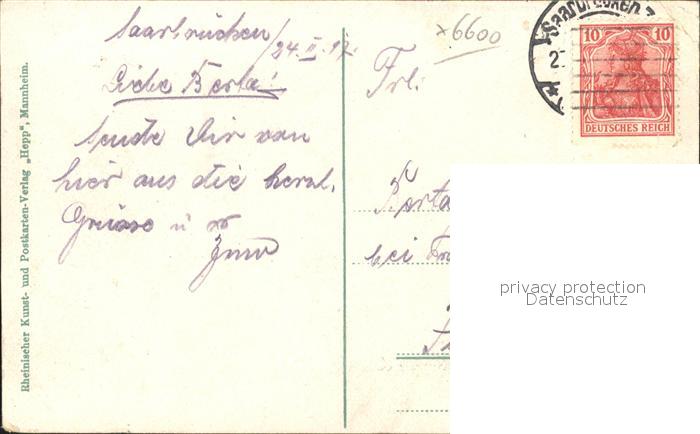 Saarbrücken
24. II. 17.
Liebe Berta!
sende Dir von
hier aus die herzl.
Grüsse u
Frl:
Berta
bei
x6600
Saarbrücken
10 10
DEUTSCHES REICH
privacy protection
Datenschutz
Rheinischer Kunst- und Postkarten-Verlag „Hepp", Mannheim.